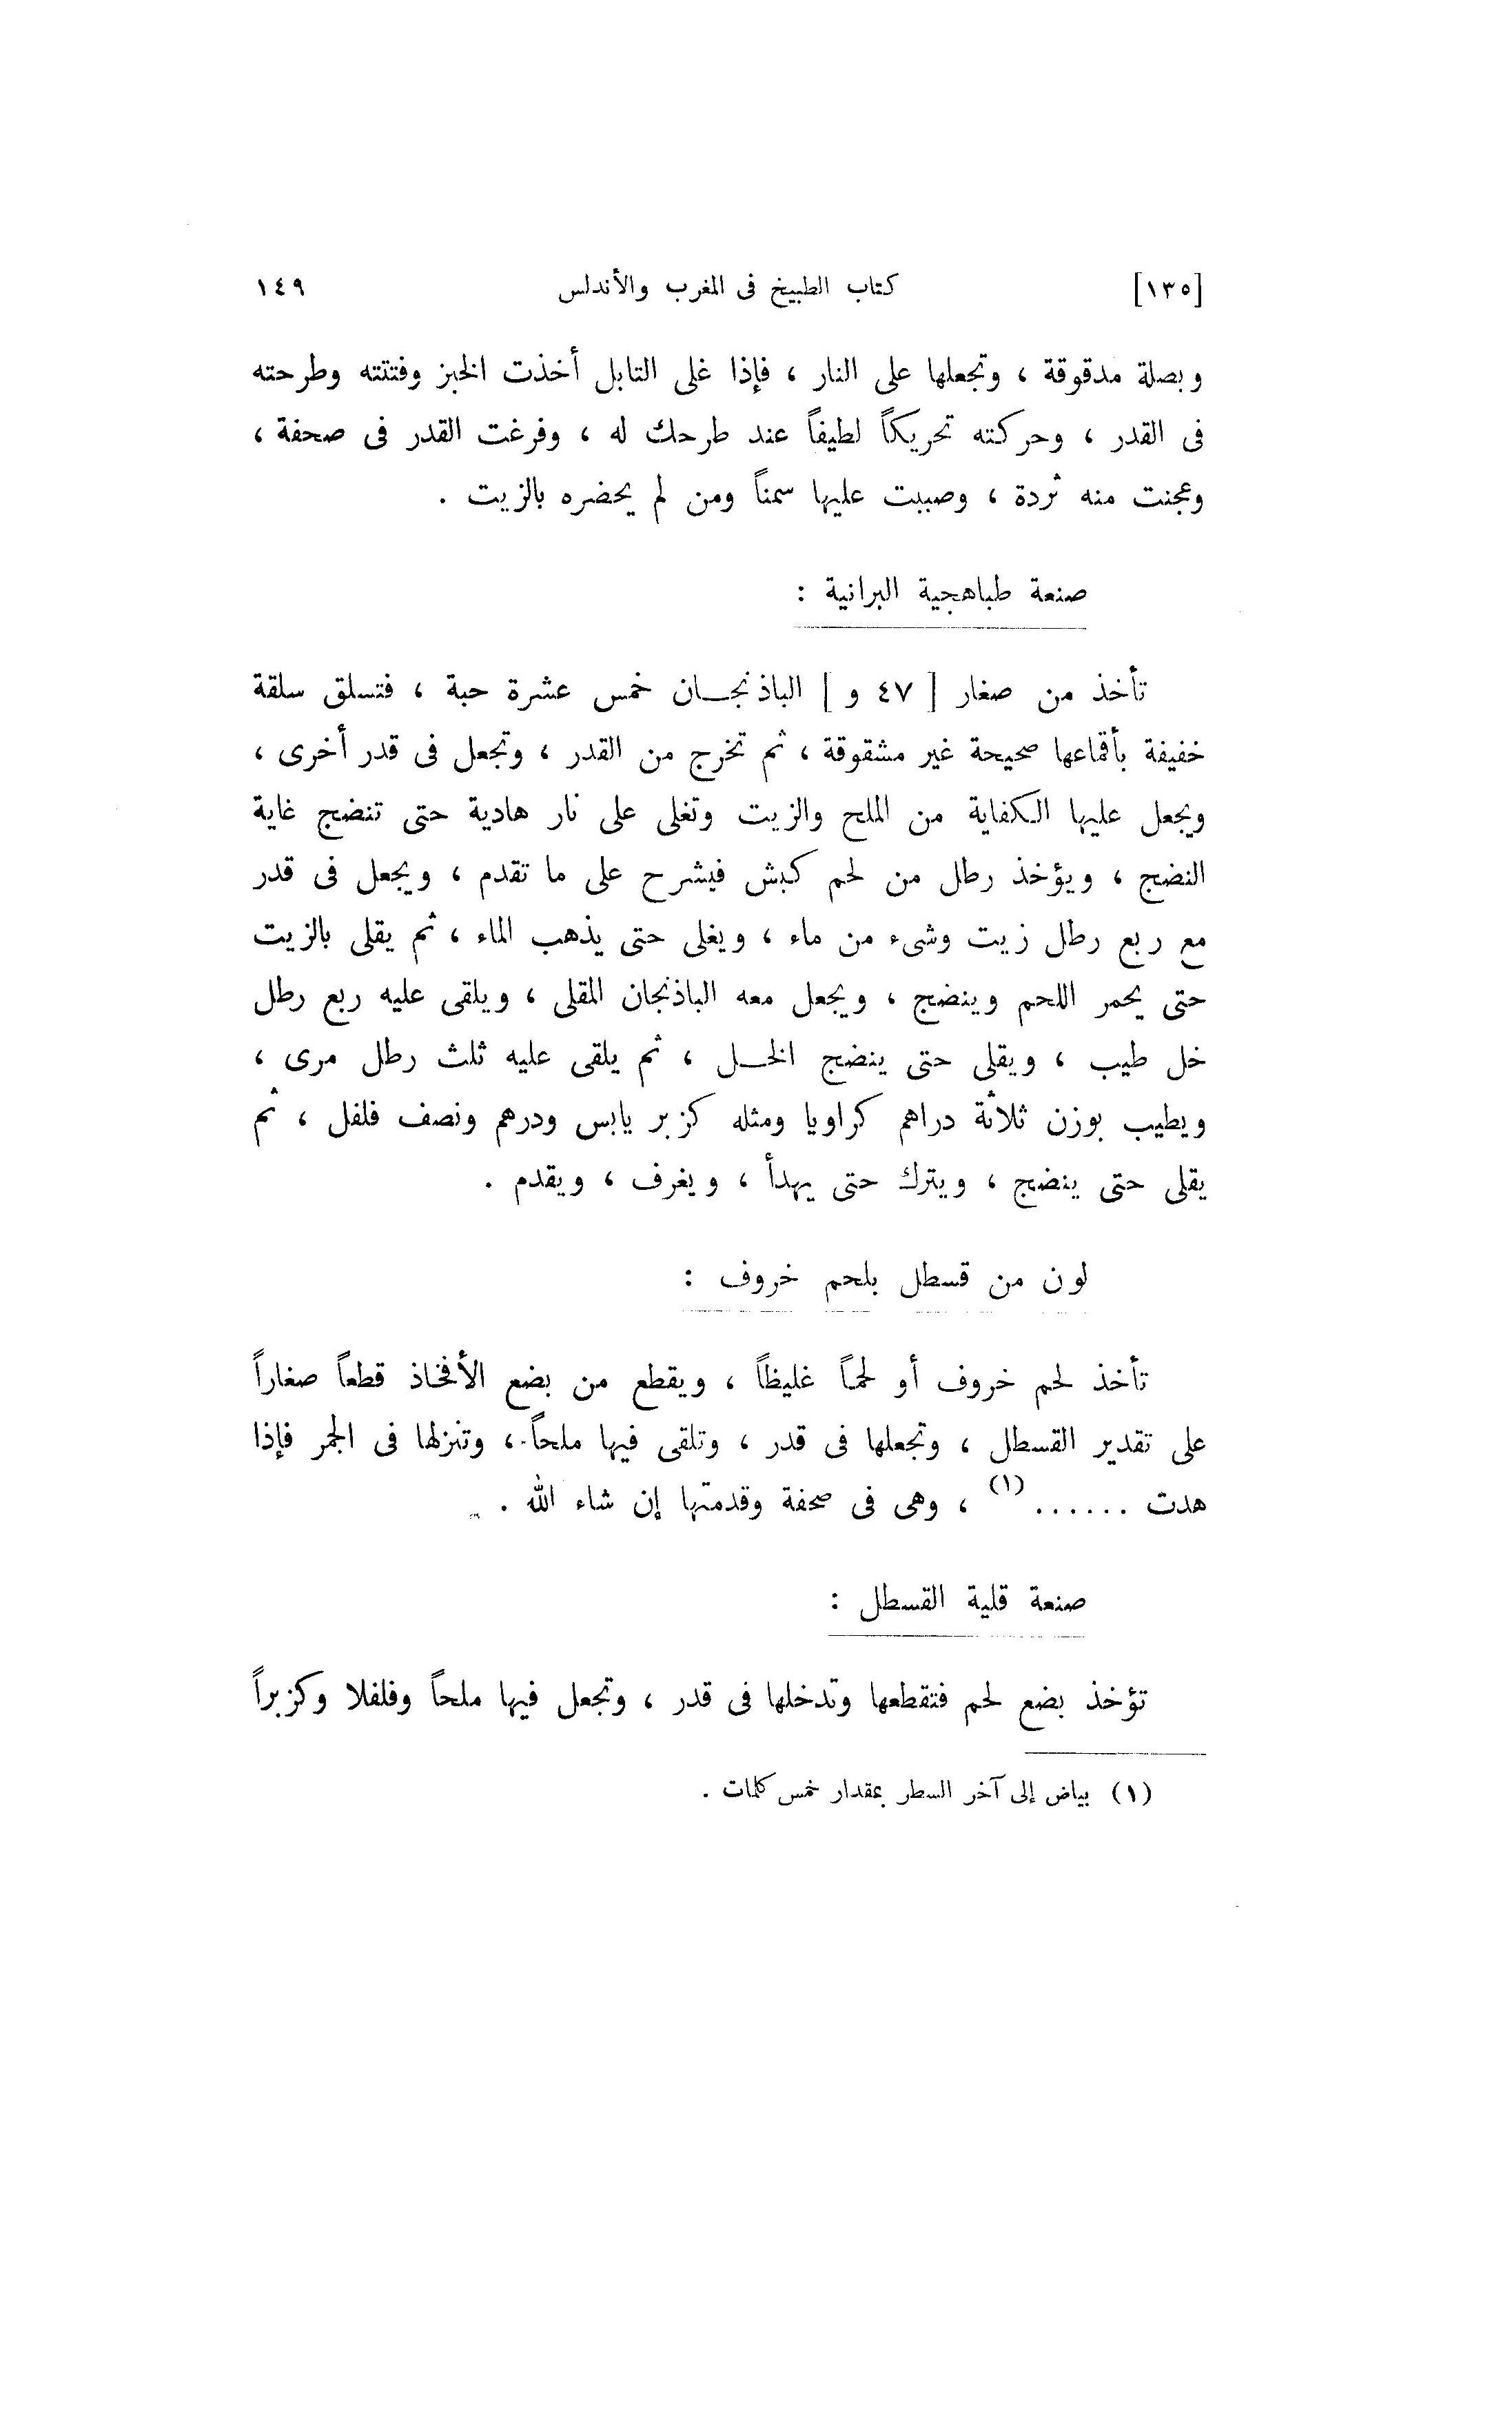 [١٣٥] كتاب الطبيخ فى المغرب والأندلس ١٤٩
وبصلة مدقوقة ، وتجعلها على النار ، فإذا غلى التابل أخذت الخبز وفتتته وطرحته
فى القدر ، وحركته تحريكاً لطيفاً عند طرحك له ، وفرغت القدر فى صحفة ،
وعجنت منه ثردة ، وصببت عليها سمناً ومن لم يحضره بالزيت .
صنعة طباهجية البرانية :
تأخذ من صغار [ ٤٧ و ] الباذنجان خمس عشرة حبة ، فتسلق سلقة
خفيفة بأقماعها صحيحة غير مشقوقة ، ثم تخرج من القدر ، وتجعل فى قدر أخرى ،
ويجعل عليها الكفاية من الملح والزيت وتغلى على نار هادية حتى تنضج غاية
النضج ، ويؤخذ رطل من لحم كبش فيشرح على ما تقدم ، ويجعل فى قدر
مع ربع رطل زيت وشىء من ماء ، ويغلى حتى يذهب الماء ، ثم يقلى بالزيت
حتى يحمر اللحم وينضج ، ويجعل معه الباذنجان المقلى ، ويلقى عليه ربع رطل
خل طيب ، ويقلى حتى ينضج الخل ، ثم يلقى عليه ثلث رطل مرى ،
ويطيب بوزن ثلاثة دراهم كراويا ومثله كزبر يابس ودرهم ونصف فلفل ، ثم
يقلى حتى ينضج ، ويترك حتى يهدأ ، ويغرف ، ويقدم .
لون من قسطل بلحم خروف :
تأخذ لحم خروف أو لحماً غليظاً ، ويقطع من بضع الأفخاذ قطعاً صغاراً
على تقدير القسطل ، وتجعلها فى قدر ، وتلقى فيها ملحاً ، وتنزلها فى الجمر فإذا
هدت ...... (١) ، وهى فى صحفة وقدمتها إن شاء الله .
صنعة قلية القسطل :
تؤخذ بضع لحم فتقطعها وتدخلها فى قدر ، وتجعل فيها ملحاً وفلفلا وكزبراً
(١) بياض إلى آخر السطر بمقدار خمس كلمات .